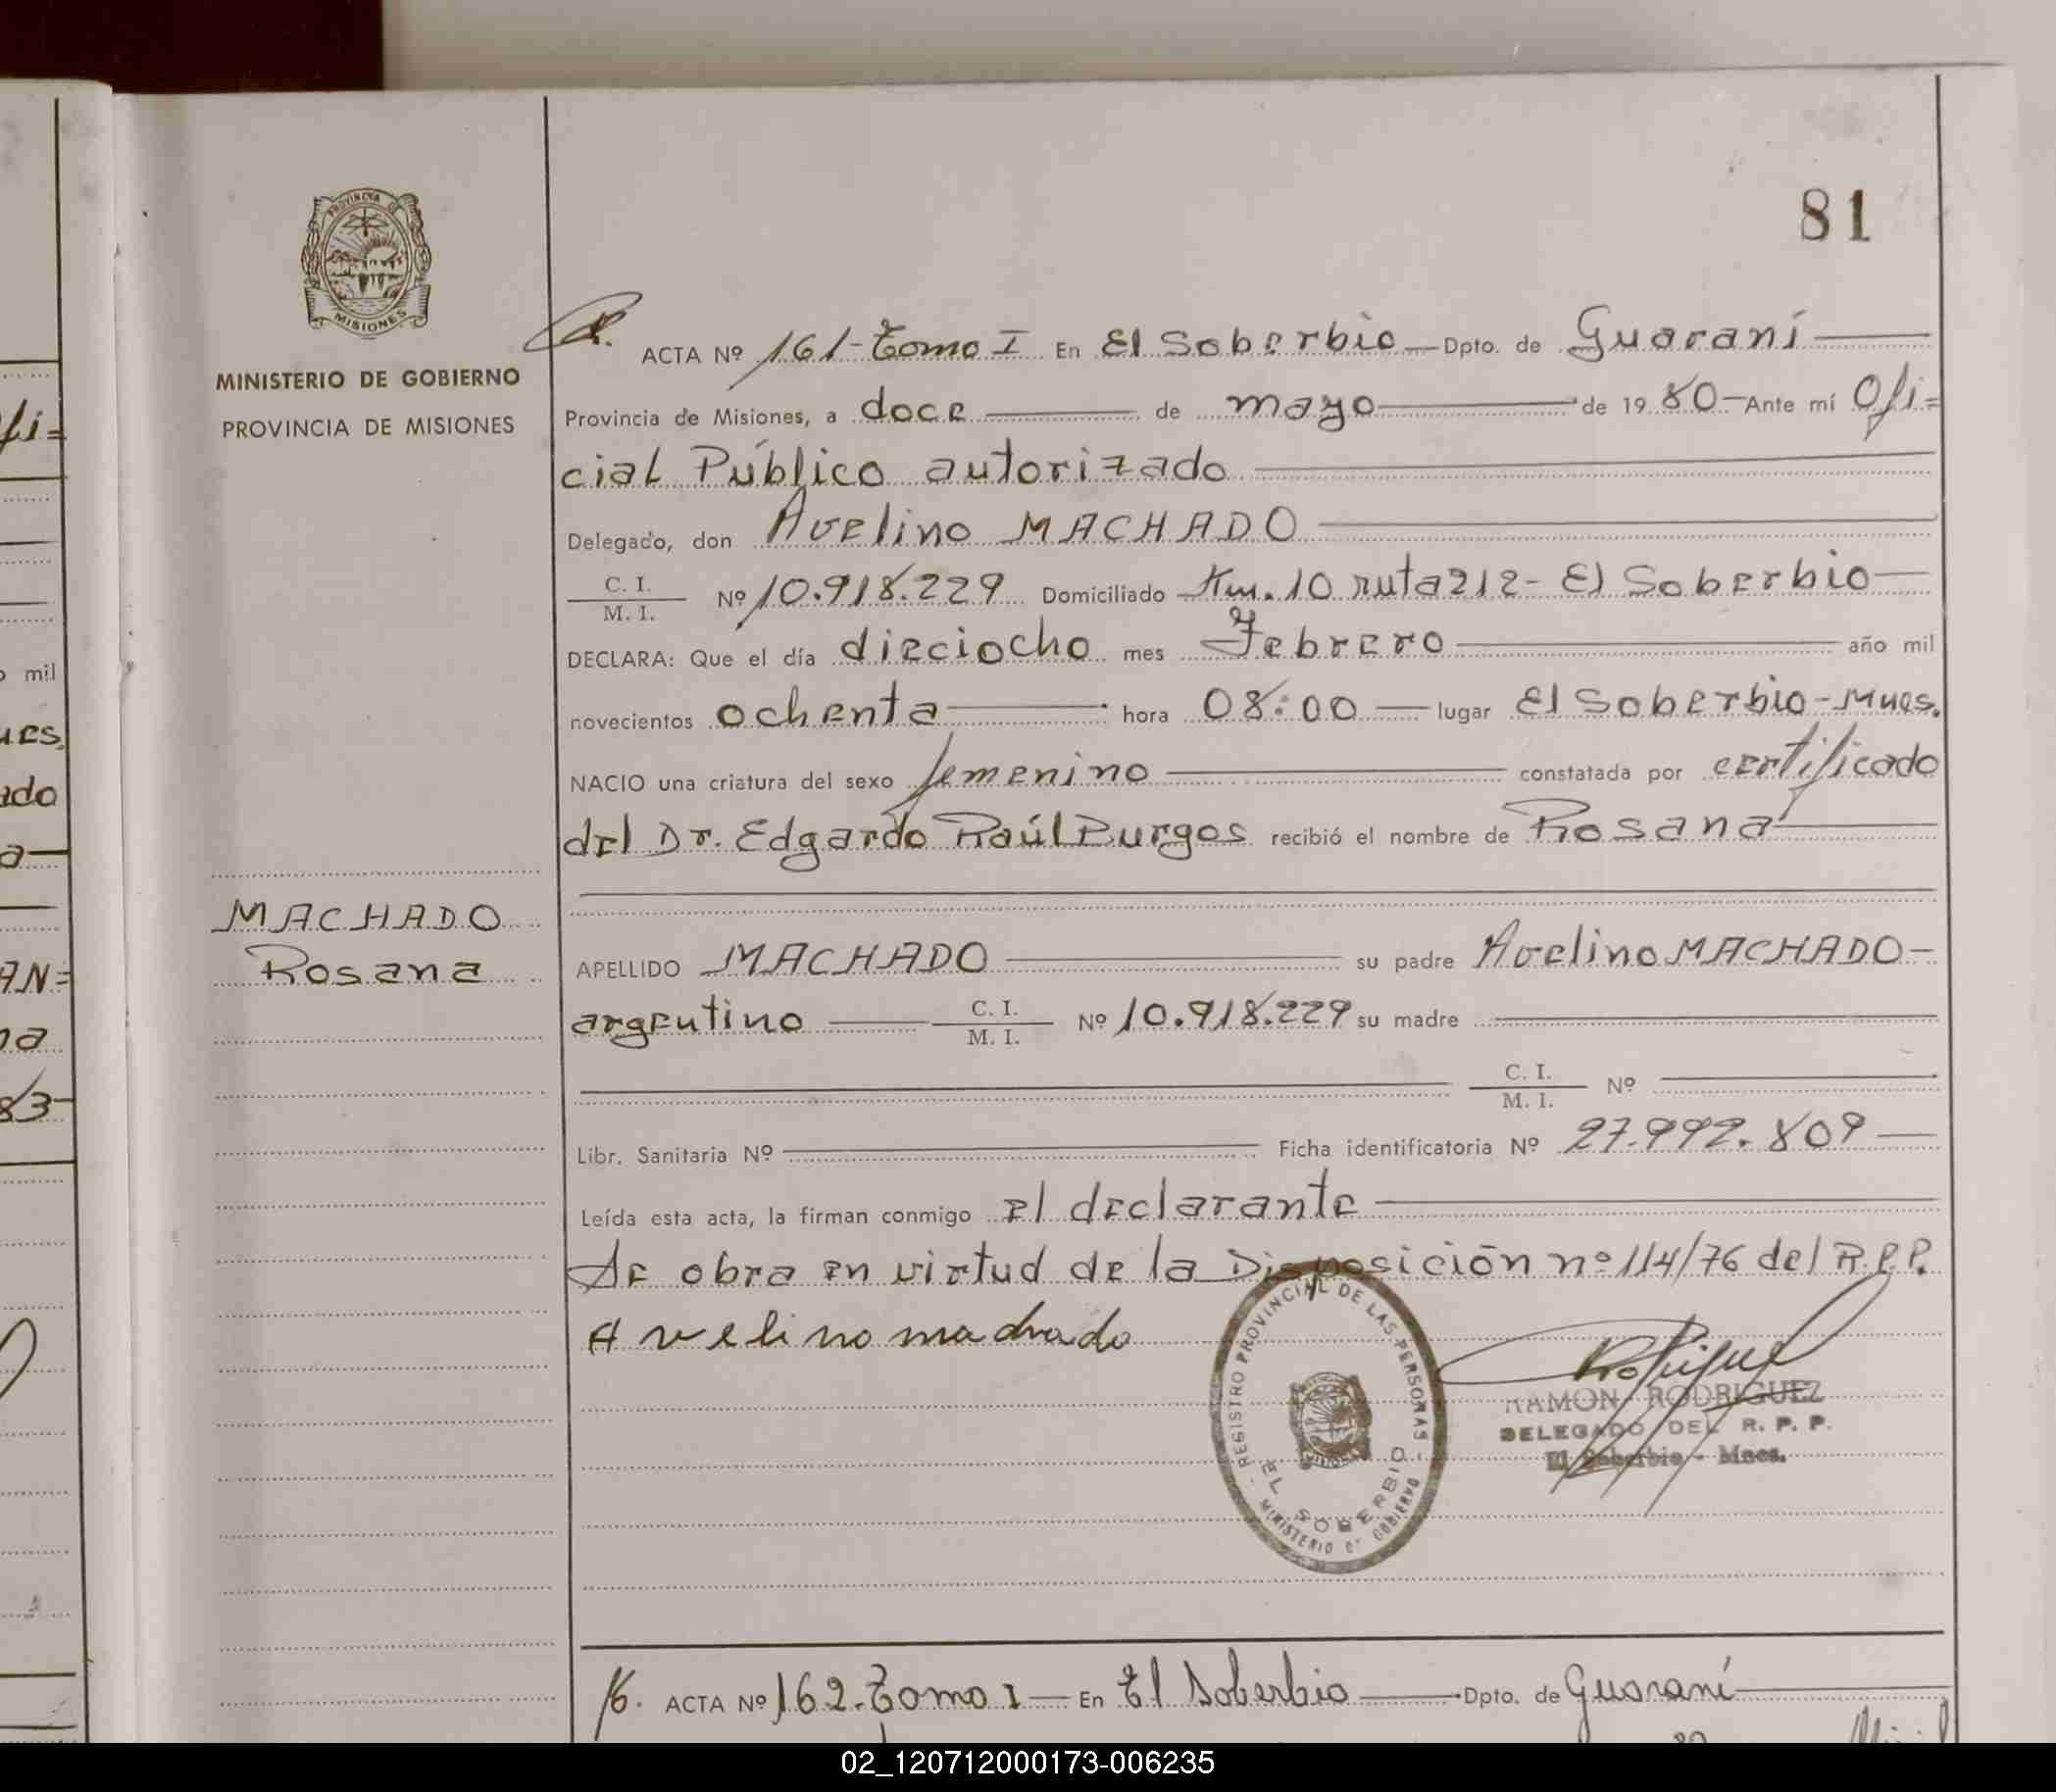 81
PROVINCIA DE
MISIONES
MINISTERIO DE GOBIERNO
PROVINCIA DE MISIONES
MACHADO
Rosana
ACTA Nº 161-Tomo I En El Soberbio Dpto. de Guaraní
Provincia de Misiones, a doce de mayo de 1980- Ante mí Ofi=
cial Público autorizado
Delegado, don Avelino MACHADO
C. I.
M. I. Nº 10.918.229 Domiciliado Km. 10 ruta 212- El Soberbio
DECLARA: Que el día dieciocho mes Febrero año mil
novecientos ochenta hora 08:00 lugar El Soberbio-Mnes.
NACIO una criatura del sexo femenino constatada por certificado
del Dr. Edgardo Raúl Burgos recibió el nombre de Rosana
APELLIDO MACHADO su padre Avelino MACHADO-
argentino C. I.
M. I. Nº 10.918.229 su madre
C. I.
M. I. Nº
Libr. Sanitaria Nº Ficha identificatoria Nº 27.992.809
Leída esta acta, la firman conmigo el declarante
Se obra en virtud de la Disposición nº 114/76 del R.P.P.
Avelino machado
REGISTRO PROVINCIAL DE LAS PERSONAS
EL SOBERBIO
MINISTERIO DE GOBIERNO
RAMON RODRIGUEZ
DELEGADO DEL R. P. P.
El Soberbio - Mnes.
ACTA Nº 162-Tomo I En El Soberbio Dpto. de Guaraní
02_120712000173-006235